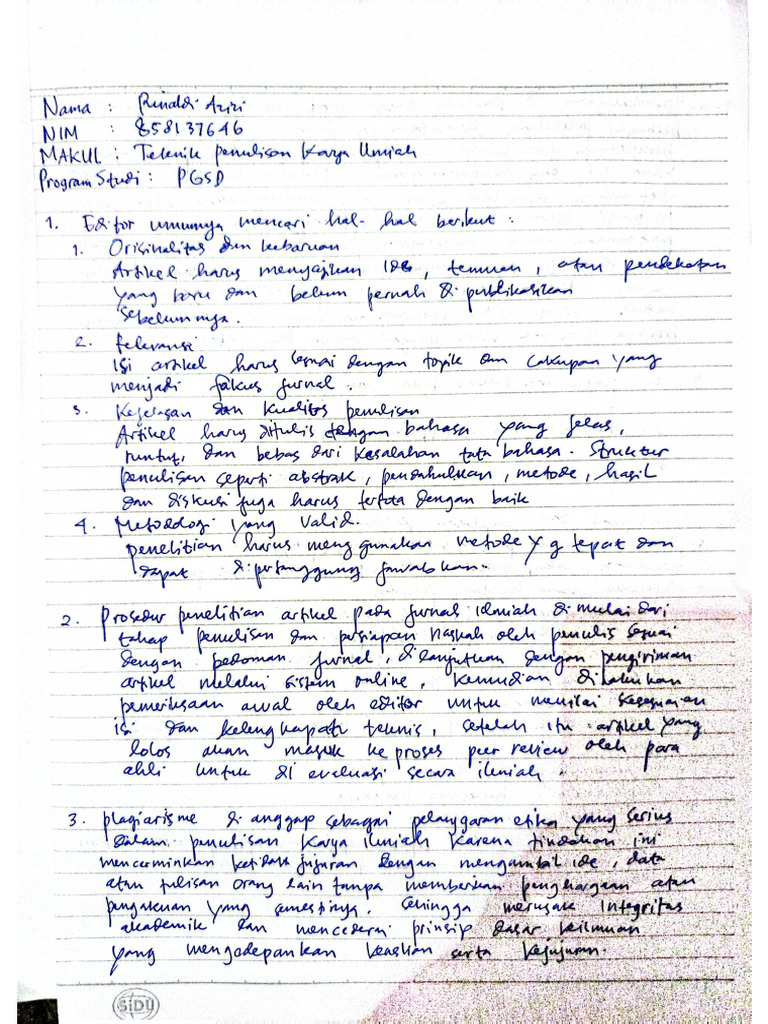 Nama : Rinaldi Azizi
NIM : 858137646
MAKUL : Teknik penulisan Karya Ilmiah
Program Studi : PGSD
1. Editor umumnya mencari hal-hal berikut :
1. Originalitas dan kebaruan
Artikel harus menyajikan ide, temuan, atau pendekatan
yang baru dan belum pernah di publikasikan
sebelumnya.
2. Relevansi
Isi artikel harus sesuai dengan topik dan cakupan yang
menjadi fokus jurnal.
3. Kejelasan dan kualitas penulisan
Artikel harus ditulis dengan bahasa yang jelas,
runtut, dan bebas dari kesalahan tata bahasa. Struktur
penulisan seperti abstrak, pendahuluan, metode, hasil
dan diskusi juga harus tertata dengan baik
4. Metodologi yang valid.
penelitian harus menggunakan metode yg tepat dan
dapat di pertanggung jawabkan.
2. Prosedur penelitian artikel pada jurnal ilmiah di mulai dari
tahap penulisan dan persiapan naskah oleh penulis sesuai
dengan pedoman jurnal, dilanjutkan dengan pengiriman
artikel melalui sistem online, kemudian dilakukan
pemeriksaan awal oleh editor untuk menilai kesesuaian
isi dan kelengkapan teknis, setelah itu artikel yang
lolos akan masuk ke proses peer review oleh para
ahli untuk di evaluasi secara ilmiah.
3. plagiarisme di anggap sebagai pelanggaran etika yang serius
dalam penulisan karya ilmiah karena tindakan ini
mencerminkan ketidak jujuran dengan mengambil ide, data
atau tulisan orang lain tanpa memberikan penghargaan atau
pengakuan yang semestinya. sehingga merusak integritas
akademik dan mencederai prinsip dasar keilmuan
yang mengedepankan keaslian serta kejujuran.
SiDU